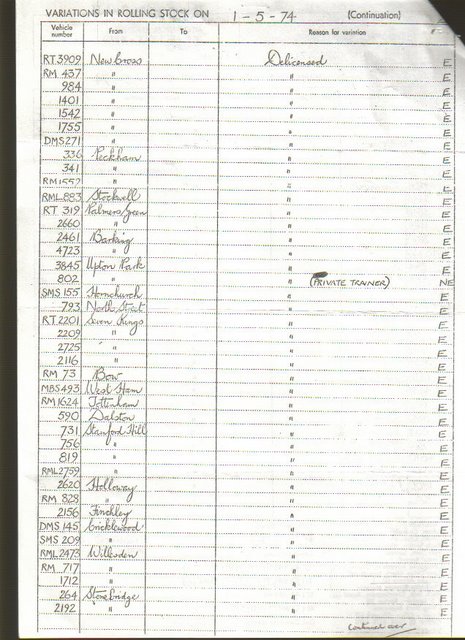 VARIATIONS IN ROLLING STOCK ON 1-5-74 (Continuation)
Vehicle number From To Reason for varintion
RT 3909 New Cross Delicensed E
RM 437 " " E
984 " " E
1401 " " E
1542 " " E
1755 " " E
DMS 271 " " E
336 Peckham " E
341 " " E
RM 1557 " " E
RML 883 Stockwell " E
RT 319 Palmers Green " E
2660 " " E
2461 Barking " E
4723 " " E
3845 Upton Park " E
802 " " (PRIVATE TRAINER) NE
SMS 155 Hornchurch " E
793 North Street " E
RT 2201 Seven Kings " E
2209 " " E
2725 " " E
2116 " " E
RM 73 Bow " E
MBS 493 West Ham " E
RM 1624 Tottenham " E
590 Dalston " E
731 Stamford Hill " E
756 " " E
819 " " E
RML 2759 " " E
2620 Holloway " E
RM 828 " " E
2156 Finchley " E
DMS 145 Cricklewood " E
SMS 209 " " E
RML 2473 Willesden " E
RM 717 " " E
1712 " " E
264 Stonebridge " E
2192 " " E
Continued over